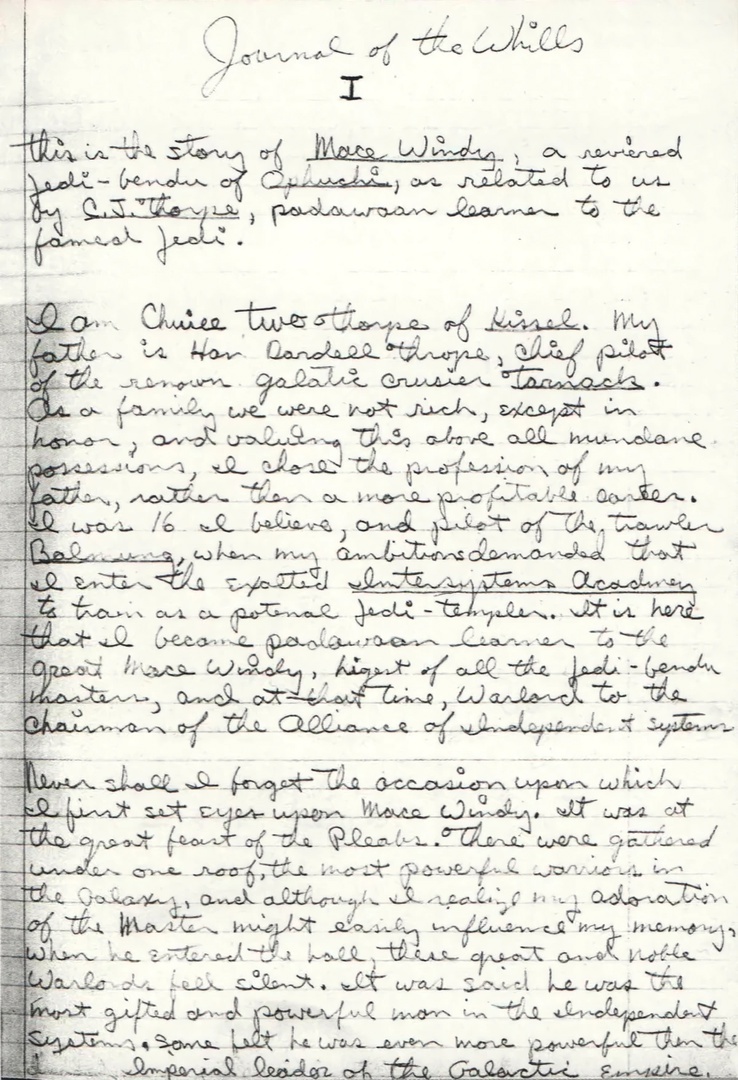 Journal of the Whills
I
this is the story of Mace Windy, a reviered
Jedi-bendu of Ophuchi, as related to us
by C.J. Thorpe, padawaan learner to the
famed Jedi.
I am Chuiee two thorpe of Kissel. My
father is Han Dardell thrope, chief pilot
of the renown galatic crusier Tarnack.
As a family we were not rich, except in
honor, and valuing this above all mundane
possessions, I chose the profession of my
father, rather then a more profitable career.
I was 16 I believe, and pilot of the trawler
Balmung, when my ambitions demanded that
I enter the exalted Intersystems Acadmey
to train as a potenal Jedi-templer. It is here
that I became padawaan learner to the
great Mace Windy, higest of all the Jedi-bendu
masters, and at that time, Warlord to the
Chairman of the Alliance of Independent systems
Never shall I forget the occasion upon which
I first set eyes upon Mace Windy. It was at
the great feast of the Pleabs. There were gathered
under one roof, the most powerful warriors in
the Galaxy, and although I realize my adoration
of the Master might easily influence my memory,
when he entered the hall, these great and noble
Warlords fell silent. It was said he was the
most gifted and powerful man in the Independent
Systems. Some felt he was even more powerful then the
Imperial leader of the Galactic Empire.